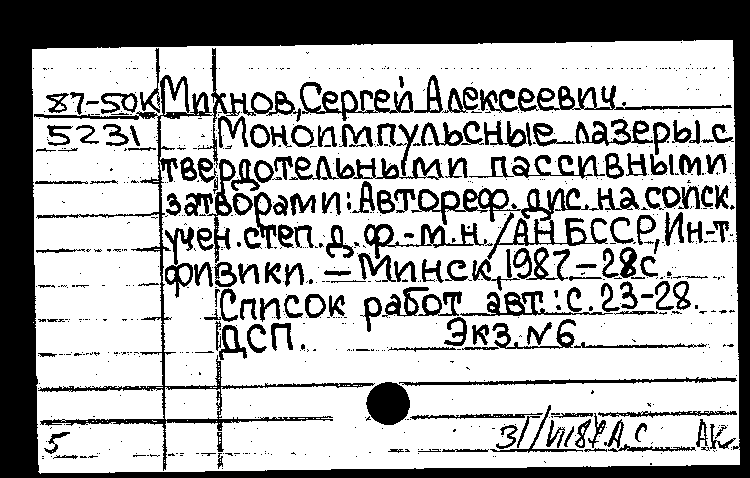 87-50К Михнов, Сергей Алексеевич.
5231 Моноимпульсные лазеры с
твердотельными пассивными
затворами: Автореф. дис. на соиск.
учен. степ. д. ф.-м. н. / АН БССР, Ин-т
физики. — Минск, 1987 – 28 с.
Список работ авт.: с. 23-28.
ДСП. Экз. N 6.
5 АК